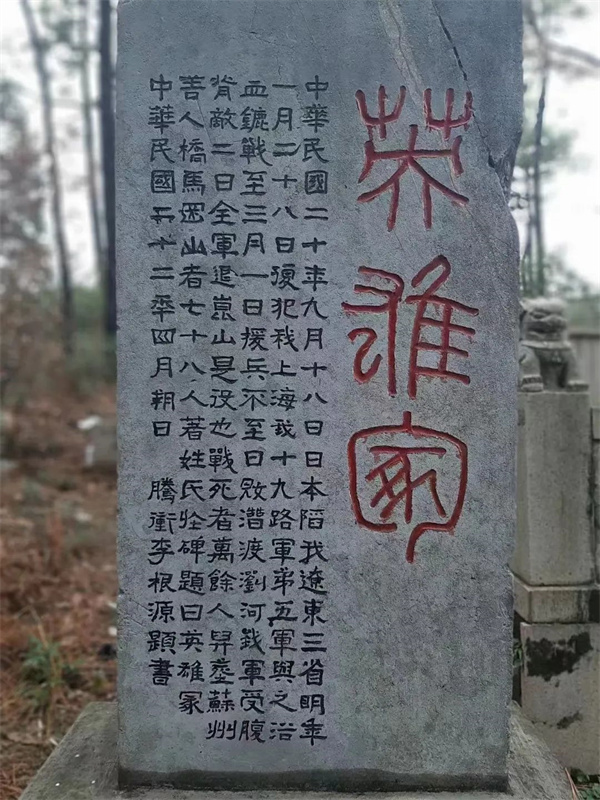 英雄冢
中華民國二十年九月十八日日本陷我遼東三省明年
一月二十八日復犯我上海我十九路軍弟五軍與之浴
血鏖戰至三月一日援兵不至日敗潛渡瀏河我軍受腹
背敵二日全軍退崑山是役也戰死者萬餘人舁塟蘇州
善人橋馬岡山者七十八人著姓氏於碑題曰英雄冢
中華民國二十二年四月朔日 騰衝李根源題書